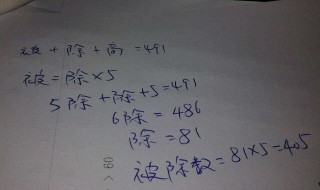 被 + 除 + 商 = 491
被 = 除 × 5
5除 + 除 + 5 = 491
6除 = 486
除 = 81
被除数 = 81×5 = 405